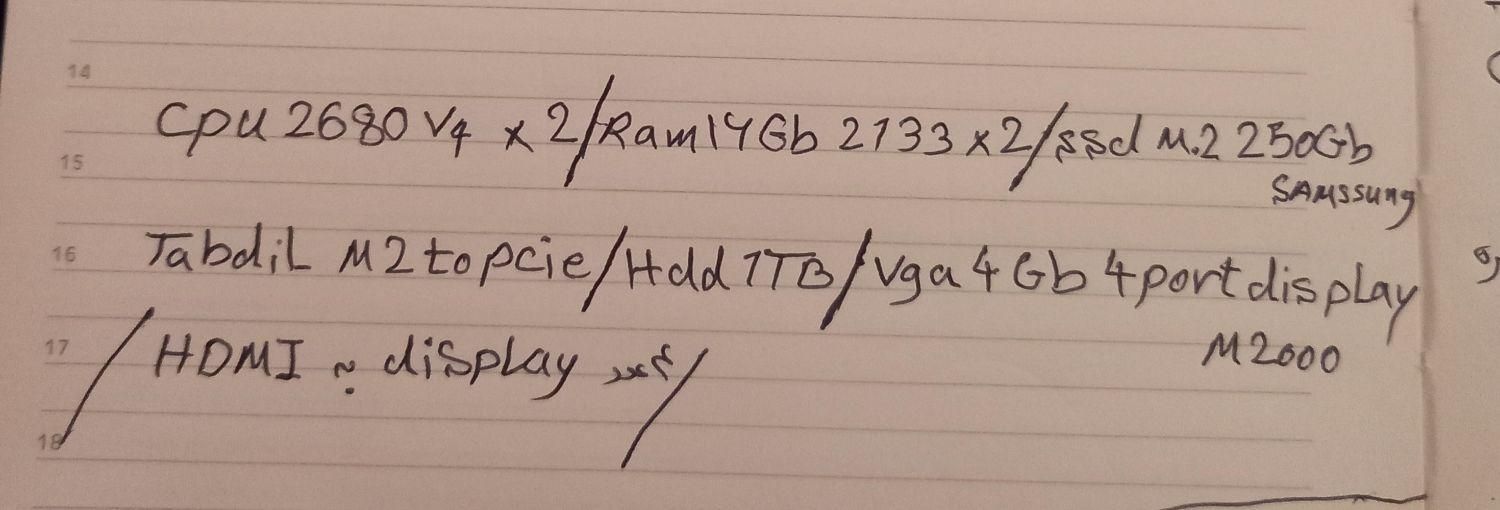 Cpu 2680 V4 x 2/Ram 14Gb 2133 x2/ssd M.2 250Gb
SAMSSung
Tabdil M2 to pcie/Hdd 1TB/Vga 4Gb 4port display
M2000
/HDMI به display عدد/
14
15
16
17
18